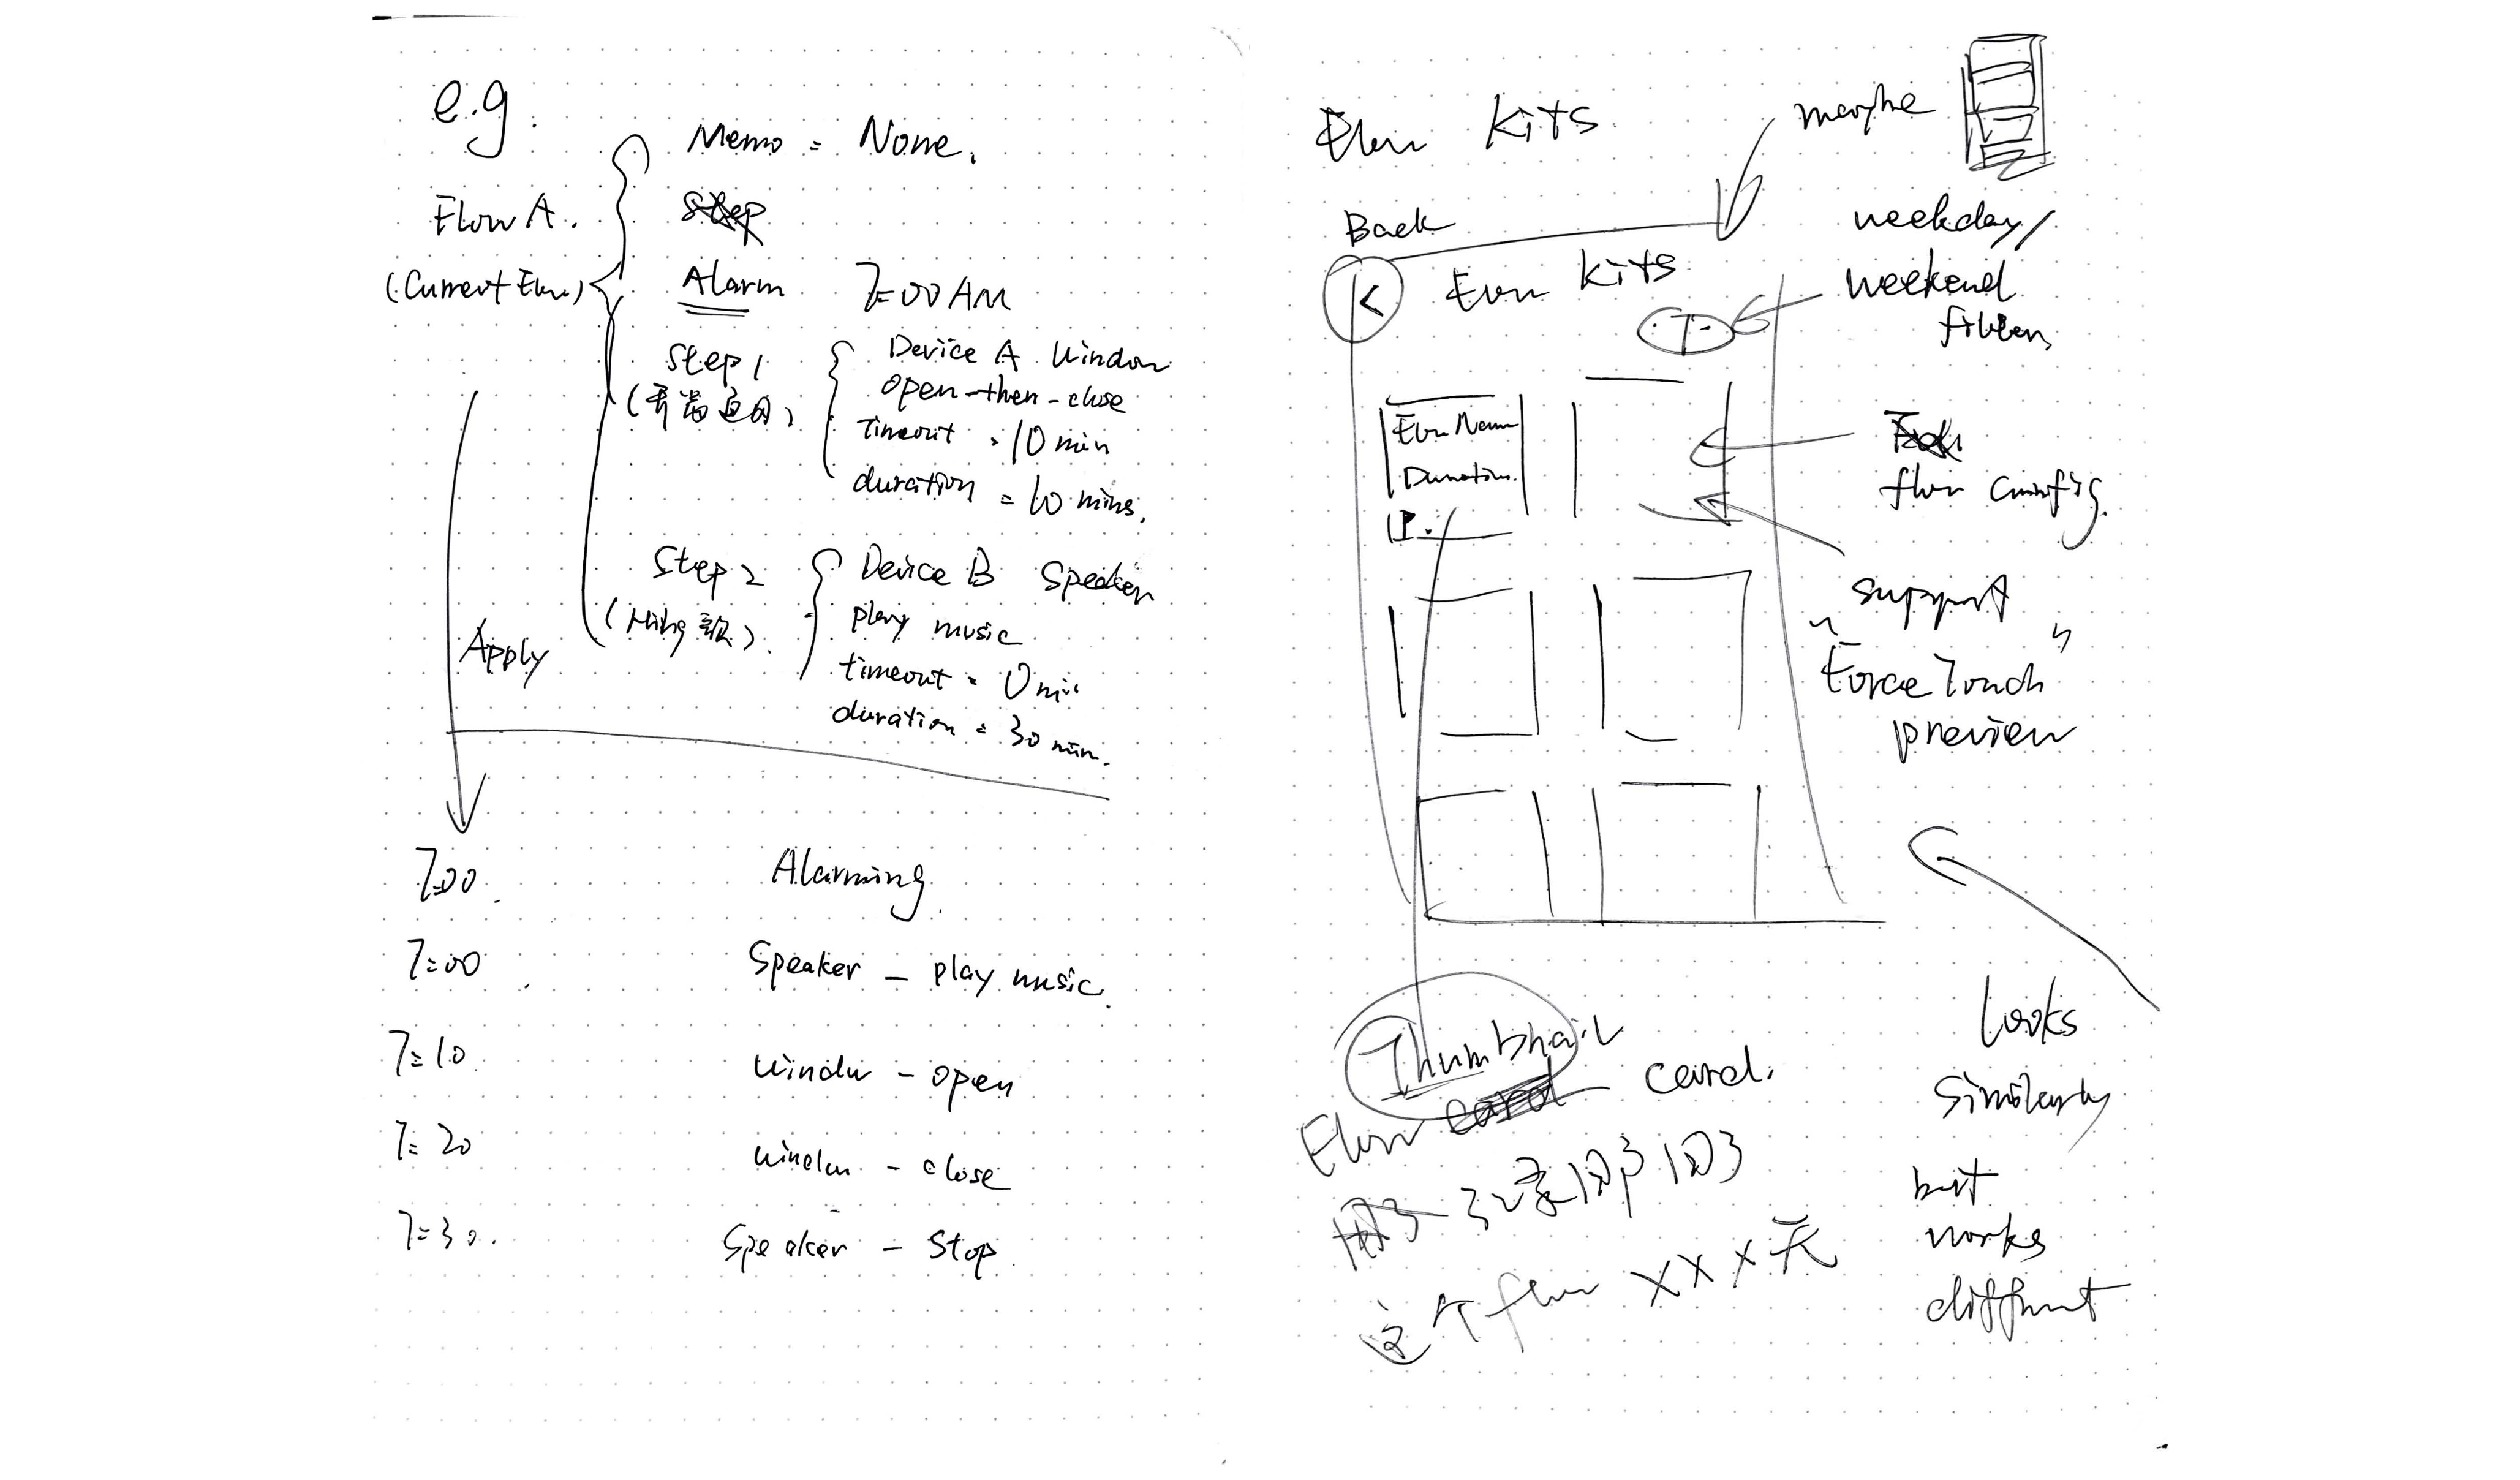 e.g.
Memo = None.
Flow A.
(Current Flow)
Alarm 7:00 AM
Step 1
Device A Window
open-then-close
timeout = 10 min
duration = 10 mins.
Step 2
Device B Speaker
play music
timeout = 0 min
duration = 30 min.
Apply
7:00 Alarming.
7:00 Speaker - play music.
7:10 window - open
7:20 window - close
7:30. Speaker - Stop
Flow Kits
Back
< Flow Kits
weekday/
weekend
filter
Flow Name
Duration.
flow config.
support
"Force Touch"
preview
Thumbnail
Flow card.
这个flow XXX天
Looks
Similarly
but
works
different